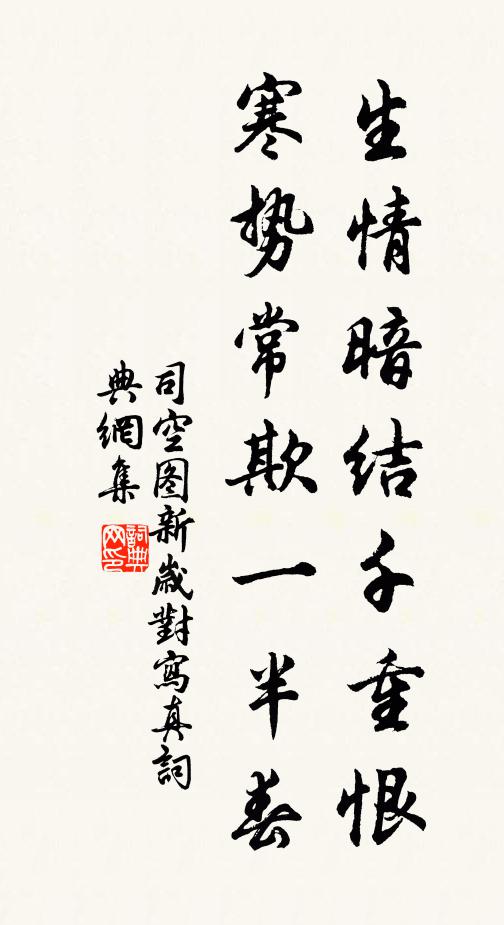 生情暗结千重恨
寒势常欺一半春
司空图新歳對寫真詞
典網集
詞典
网印